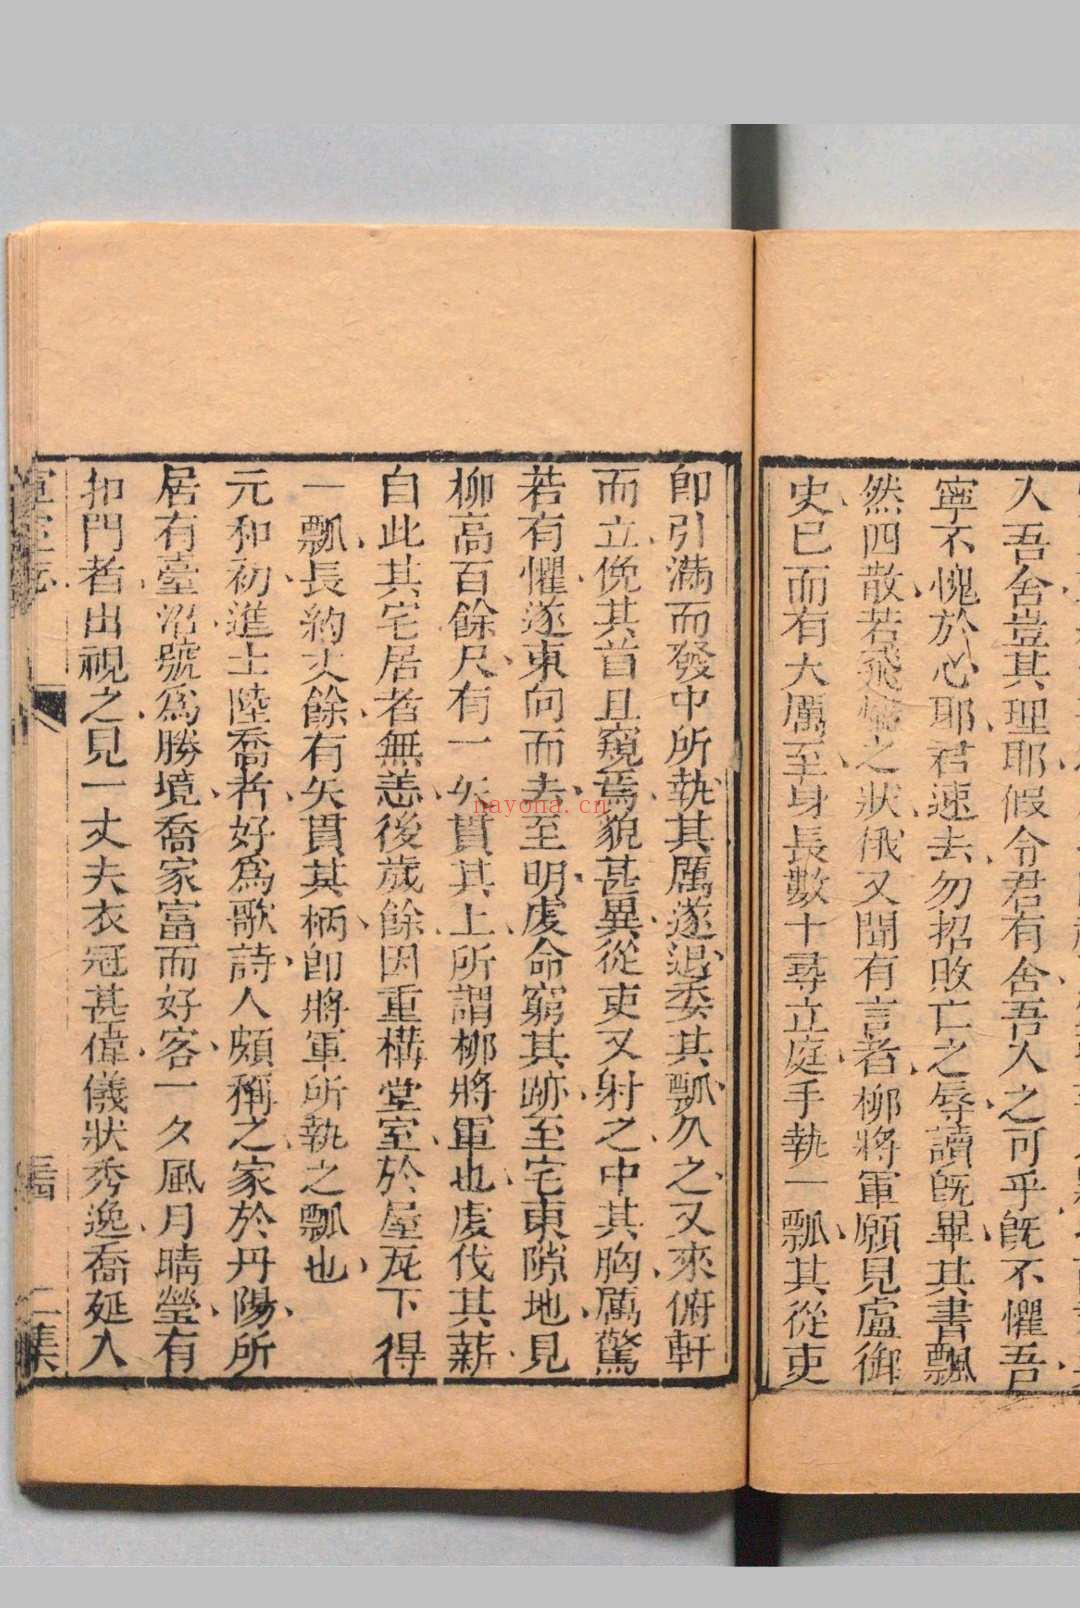 人吾舍豈其理耶假令君有舍吾人之可乎旣不懼吾
寧不愧於心耶君速去勿招敗亡之辱讀旣畢其書飄
然四散若飛之狀俄又聞有言者柳將軍願見盧御
史已而有大厲至身長數十尋立庭手執一瓢其從吏
卽引滿而發中所執其厲遂退委其瓢久之又來俯軒
而立俛其首且窺焉貌甚異從吏又射之中其胸厲驚
若有懼遂東向而去至明虔命窮其跡至宅東隙地見
柳高百餘尺有一矢貫其上所謂柳將軍也虔伐其薪
自此其宅居者無恙後歲餘因重構堂室於屋瓦下得
一瓢長約丈餘有矢貫其柄卽將軍所執之瓢也
元和初進士陸喬者好爲歌詩人頗稱之家於丹陽所
居有臺沼號爲勝境喬家富而好客一夕風月晴瑩有
扣門者出視之見一丈夫衣冠甚偉儀狀秀逸喬延入
宣室志
二集
nayona.cn